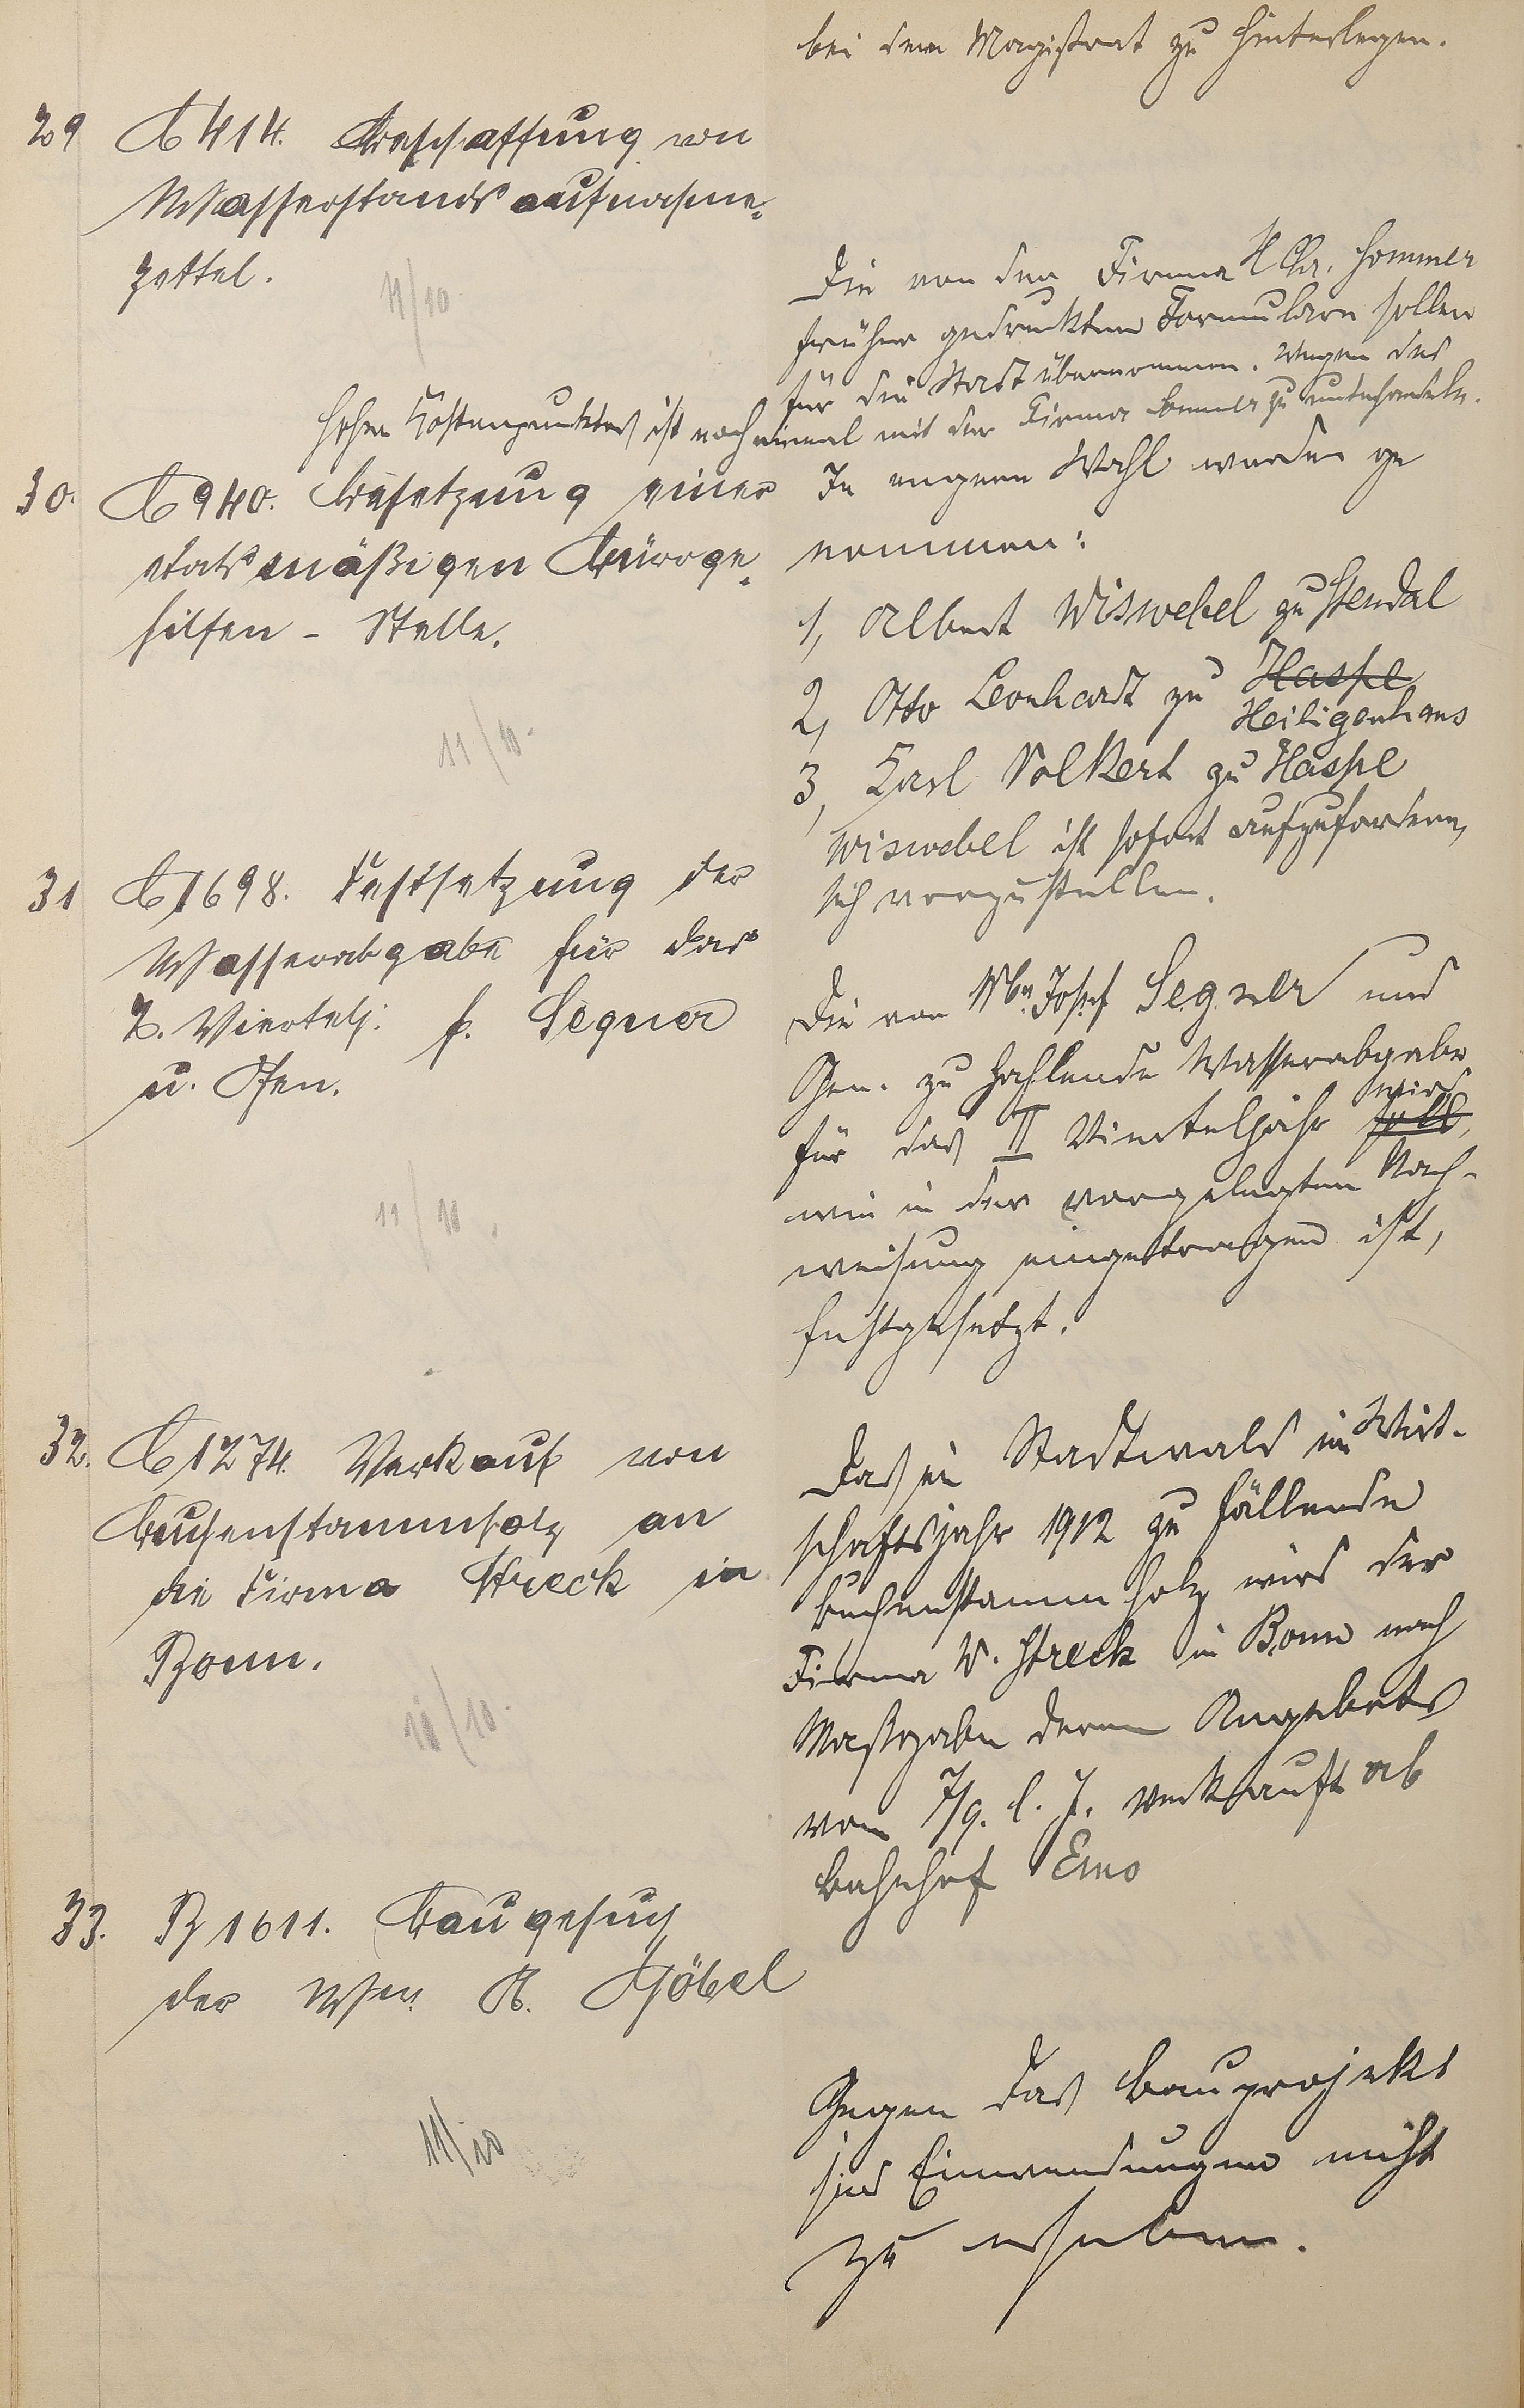 bei dem Magistrat zu hinterlegen.
29 B 414. Beschaffung von
Wasserstandsaufnahme-
zettel.
11/10.
Die von der Firma H Chr. Sommer
früher gedruckten Formulare sollen
für die Stadt übernommen. Wegen des
hohen Kostenpunktes ist noch einmal mit der Firma Sommer zu unterhandeln.
30. B 940. Besetzung einer
etatsmäßigen Büroge-
hilfen - Stelle.
11/10.
In engere Wahl werden ge
nommen:
1, Albert Wiswebel zu Stendal
2, Otto Leonhardt zu Haspe
Heiligenhaus
3, Karl Volkert zu Haspe
Wiswebel ist sofort aufzufordern,
sich vorzustellen.
31 B 1698. Festsetzung der
Wasserabgabe für das
2. Viertelj: f. Segner
u. Gen.
11/10.
Die von Wwe. Josef Segner und
Gen. zu zahlende Wasserabgabe
wird
für das II Vierteljahr soll,
wie in der vorgelegten Nach-
weisung eingetragen ist,
festgesetzt.
32. B 1274. Verkauf von
Buchenstammholz an
die Firma Streck in
Bonn.
10/10.
Das im Stadtwald im Wirt-
schaftsjahr 1912 zu fällende
Buchenstammholz wird der
Firma W. Streck in Bonn nach
Maßgabe deren Angebots
vom 7/9. l. J. verkauft ab
Bahnhof Ems
33. B 1611. Baugesuch
der Wwe. A. Göbel
11/10
Gegen das Bauprojekt
sind Einwendungen nicht
zu erheben.